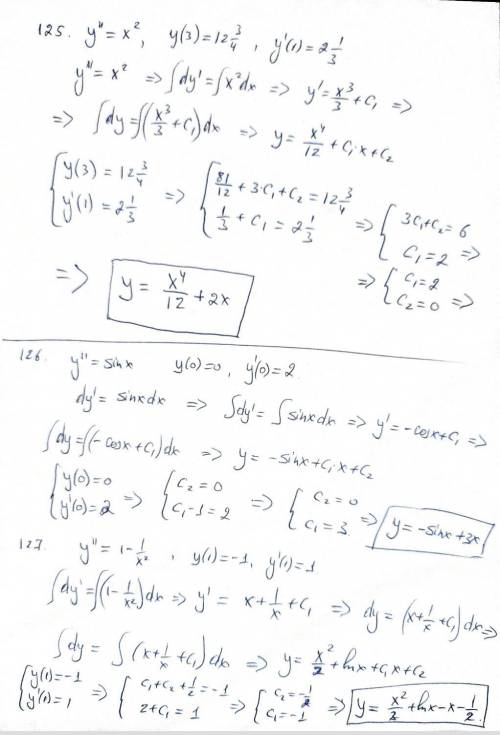 125. y'' = x², y(3) = 12 3/4, y'(1) = 2 1/3
y'' = x² => ∫dy' = ∫x²dx => y' = x³/3 + C₁ =>
=> ∫dy = ∫(x³/3 + C₁)dx => y = x⁴/12 + C₁·x + C₂
{ y(3) = 12 3/4 ; y'(1) = 2 1/3 => { 81/12 + 3·C₁ + C₂ = 12 3/4 ; 1/3 + C₁ = 2 1/3 => { 3C₁ + C₂ = 6 ; C₁ = 2 =>
=> { C₁ = 2 ; C₂ = 0 =>
=> y = x⁴/12 + 2x
126. y'' = sinx y(0) = 0, y'(0) = 2
dy' = sinxdx => ∫dy' = ∫sinxdx => y' = -cosx + C₁ =>
∫dy = ∫(-cosx + C₁)dx => y = -sinx + C₁·x + C₂
{ y(0) = 0 ; y'(0) = 2 => { C₂ = 0 ; C₁ - 1 = 2 => { C₂ = 0 ; C₁ = 3 => y = -sinx + 3x
127. y'' = 1 - 1/x², y(1) = -1, y'(1) = 1
∫dy' = ∫(1 - 1/x²)dx => y' = x + 1/x + C₁ => dy = (x + 1/x + C₁)dx =>
∫dy = ∫(x + 1/x + C₁)dx => y = x²/2 + lnx + C₁x + C₂
{ y(1) = -1 ; y'(1) = 1 => { C₁ + C₂ + 1/2 = -1 ; 2 + C₁ = 1 => { C₂ = -1/2 ; C₁ = -1 => y = x²/2 + lnx - x - 1/2.